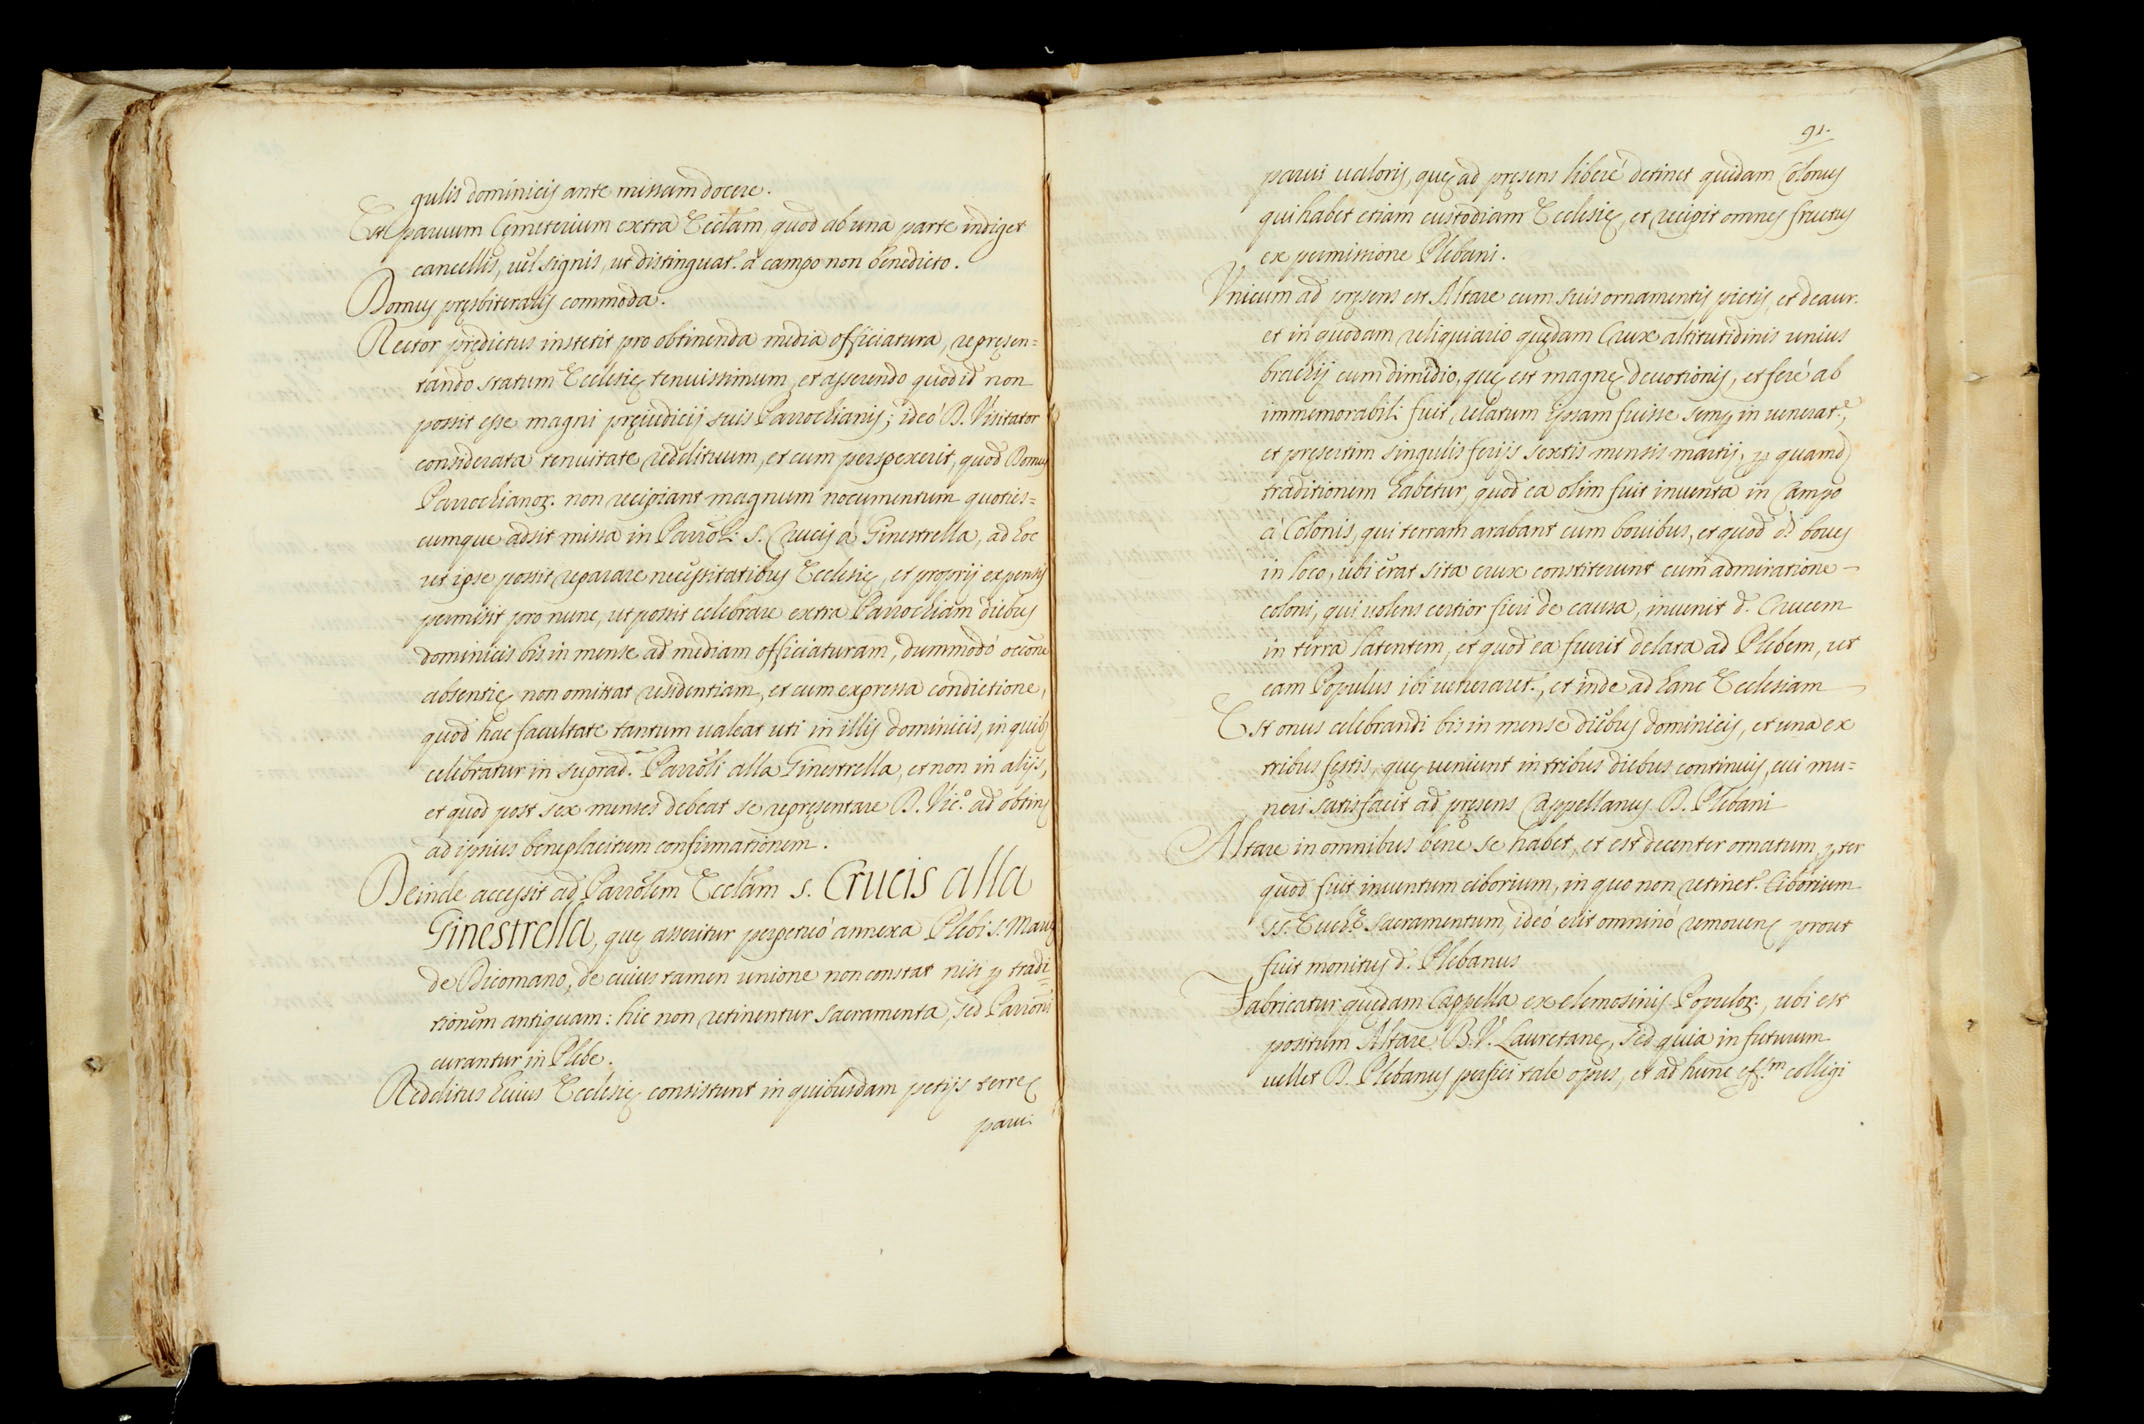 gulis dominicis ante missam docere.
Est paruum Cęmeterium extra Eccłam, quod ab una parte indiget
cancellis, uel signis, ut distinguat. à campo non benedicto.
Domus pręsbiteralis commoda.
Rector prędictus institit pro obtinenda media officiatura, repręsen=
tando statum Ecclesię tenuissimum, et asserendo quod id non
possit esse magni pręiudicij suis Parrochianis; ideò D. Visitator
considerata tenuitate reddituum, et cum perspexerit, quod Domus
Parrochianoꝝ. non recipiant magnum nocumentum quoties=
cumque adsit missa in Parroli S. Crucis à Ginestrella, ad hoc
ut ipse possit reparare necessitatibus Ecclesię, et proprijs expensis
permisit pro nunc, ut possit celebrare extra Parrochiam diebus
dominicis bis in mense ad mediam officiaturam, dummodò occõne
absentię non omittat residentiam, et cum expressa condictione,
quod hac facultate tantum ualeat uti in illis dominicis, in quib,
celebratur in suprad.ᵃ Parroli alla Ginestrella, et non in alijs,
et quod post sex menses debeat se repręsentare D. Vic.º ad obtinę
ad ipsius beneplacitum confirmationem.
Deinde accessit ad Parrolem Eccłam S. Crucis alla
Ginestrella, quę asseritur perpetuò annexa Plebi S. Marię
de Dicomano, de cuius tamen unione non constat nisi ꝑ tradi=
tionem antiquam: hic non retinentur Sacramenta, sed Parroni
curantur in Plebe.
Redditus huius Ecclesię consistunt in quibusdam petijs terrę
parui
91.
parui ualoris, quę ad pręsens liberè detinet quidam Colonus
qui habet etiam custodiam Ecclesię, et recipit omnes fructus
ex permissione Plebani.
Vnicum ad pręsens est Altare cum suis ornamentis pictis, et deaur.
et in quodam reliquiario quędam Crux altitutidinis unius
brachij cum dimidio, quę est magnę deuotionis, et ferè ab
immemorabili fuit relatum ipsam fuisse semꝑ in uenerat.ᵉ,
et pręsertim singulis ferijs sextis mensis martij, ꝑ quamd
traditionem habetur, quod ea olim fuit inuenta in Campo
à Colonis, qui terram arabant cum bouibus, et quod dᵈ. boues
in loco, ubi erat sita crux constiterunt cum admiratione
coloni, qui uolens certior fieri de causa, inuenit d. Crucem
in terra latentem, et quod ea fuerit delata ad Plebem, ut
eam Populus ibi ueneraret., et inde ad hanc Ecclesiam
Est onus celebrandi bis in mense diebus dominicis, et una ex
tribus festis, quę ueniunt in tribus diebus continuis, cui mu=
neri satisfacit ad pręsens Cappellanus D. Plebani
Altare in omnibus bene se habet, et est decenter ornatum, pṛter
quod fuit inuentum ciborium, in quo non retinet. Ciborium
SS. Euch.ę Sacramentum, ideò erit omninò remouenę prout
fuit monitus d. Plebanus
Fabricatur quędam Cappella ex elemosinis Populoꝝ., ubi est
positum Altare B. V. Lauretanę, sed quia in futurum
uellet D. Plebanus perfici tale opus, et ad hunc eff.m colligi